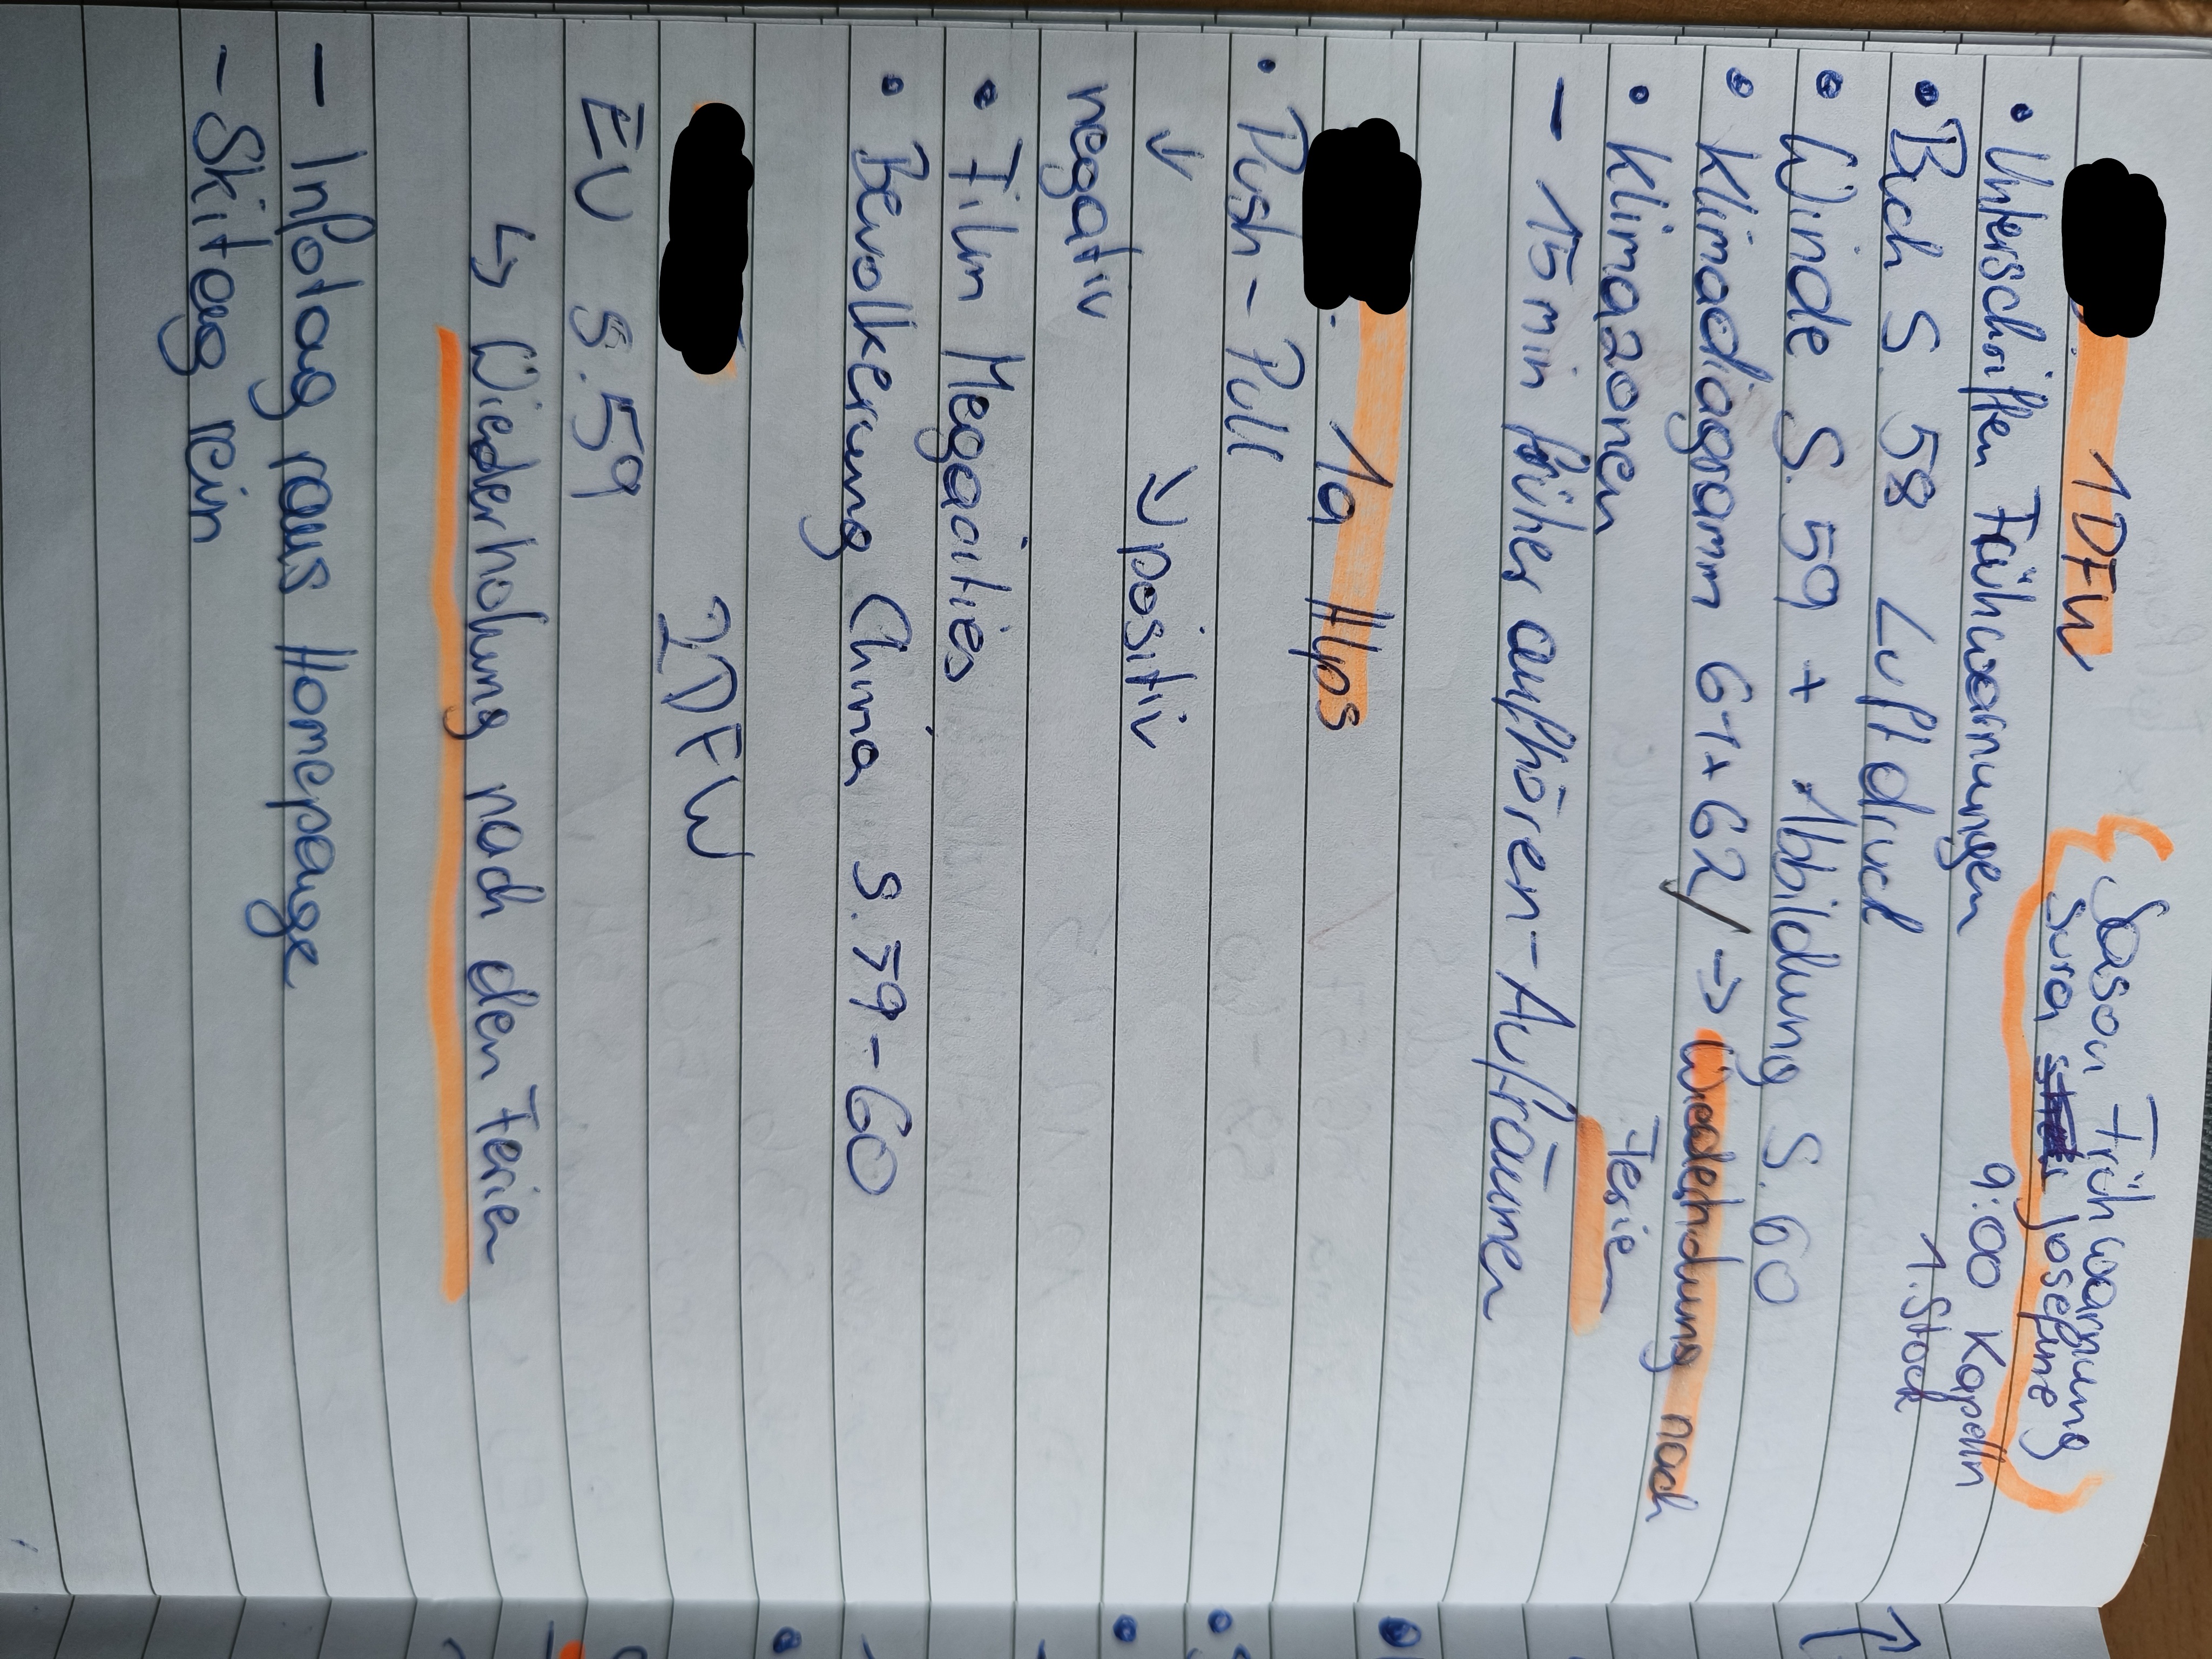 1DFW
Sasan Frühwarnung
Sura Josefine
9:00 Kapelln
1. Stock
• Unterschriften Frühwarnungen
• Buch S. 58 Luftdruck
• Winde S. 59 + Abbildung S. 60
• Klimadiagramm 61+62 / → Wiederholung nach
Ferien
• Klimazonen
- 15min früher aufhören - Aufräumen
1a Hps
• Push - Pull
↓ ↓ positiv
negativ
• Film Megacities
• Bevölkerung China S. 59 - 60
2DFW
EU S. 59
↳ Wiederholung nach den Ferien
- Infotag raus Homepage
- Skitag rein